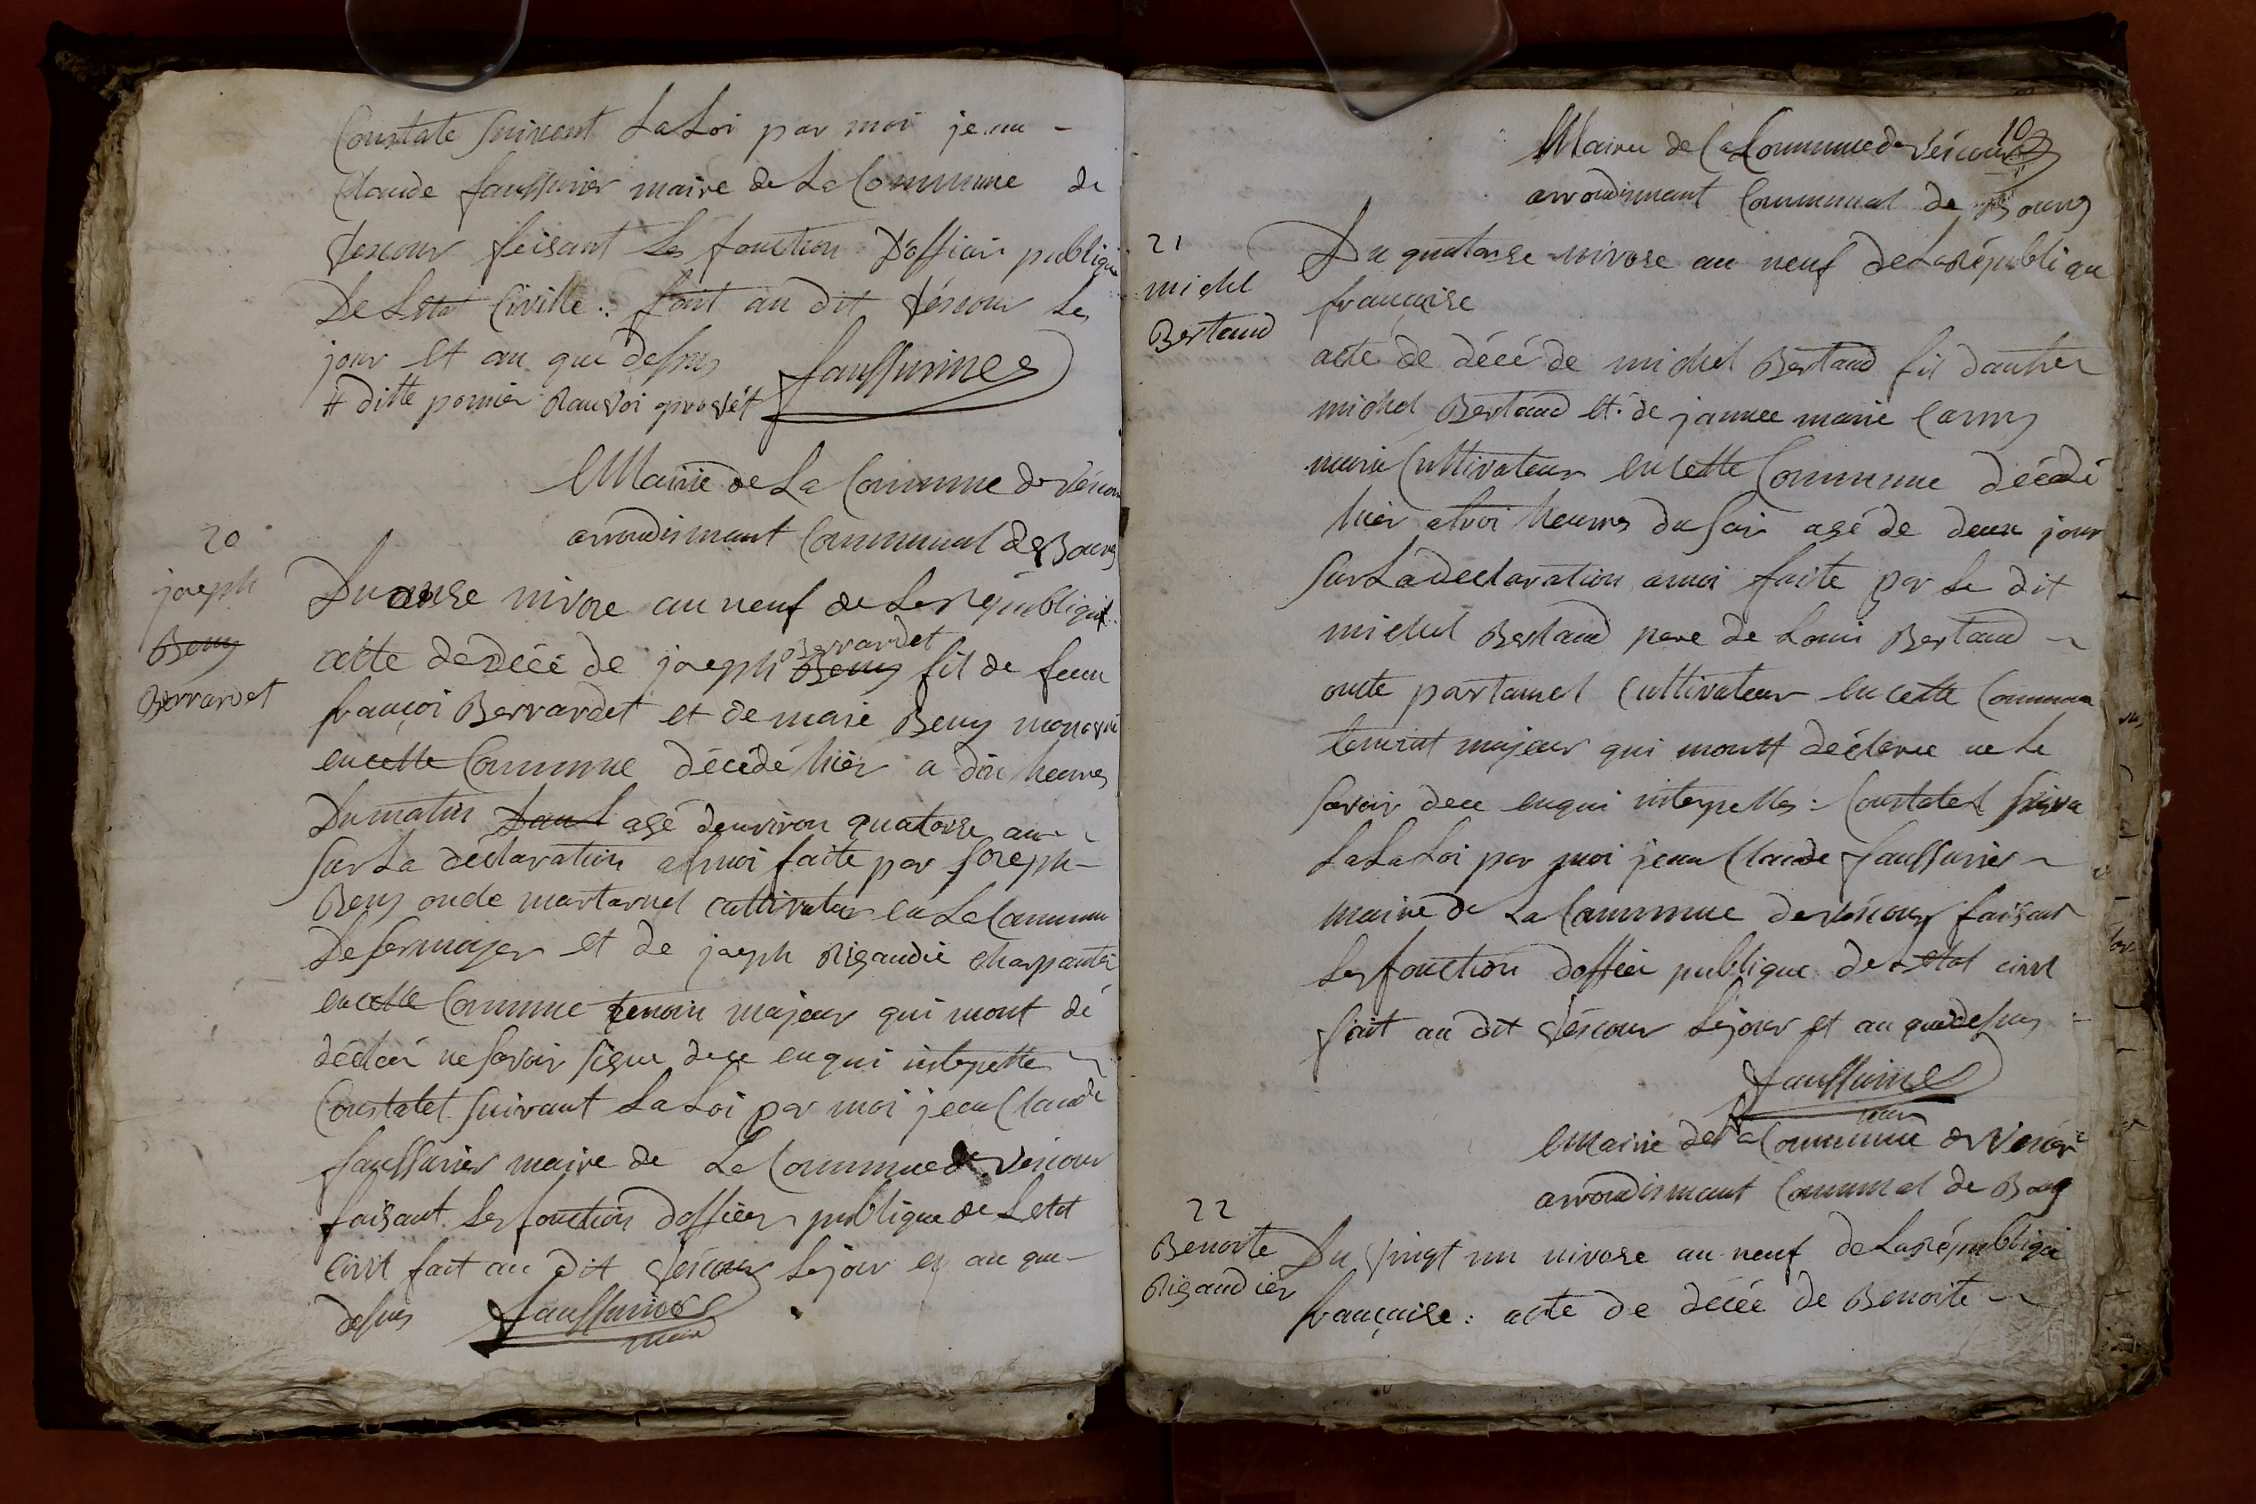 Constate suivant La Loi par moi jean
Claude faussurier maire de La Commune de
Vescour feisant Les fonction Dofficier publique
De Letat Civille : fait au dit Véscour Le
jour et an que desus faussurier
# ditte pomier Ranvoi aprové
Mairie de La Commune de Véscour
arrondismant Communal de Bourg
20
joseph
Beny
Berrardet
Du onse nivose an neuf de La République
acte de décé de joseph Beny Berrardet fil de feu
françoi Berrardet et de marie Beny
en cette Commune décédé hièr a dix heures
Du matin agé denviron quatorse an
sur La déclaration a moi faite par Joseph
Beny oncle martarnel cultivateur en La Commune
De Sermoyer et de joseph Rigaudié charpantié
en cette Commune temoin majeur qui mont dé
déclaré ne savoir signe dece enqui interpellé
Constatet suivant La Loi par moi jean Claude
faussurier maire de La Commune de Vescour
faisant Les fonction dofficier publique de Letat
Civil fait au dit Véscour Le jour et an que
desus faussurier
maire
10
Mairie de La Commune de Véscour
arrondismant Communal de Bourg
21
michel
Bertaud
Du quatorse nivose an neuf de La République
francaise
acte de décé de michel Bertaud fil dautre
michel Bertaud et de jannee marie
marié Cultivateur en cette Commune décédé
hièr a troi heures du soir agé de deux jour
sur La déclaration a moi faite par Le dit
michel Bertaud pere de Louis Bertaud
oncle partarnel Cultivateur en cette Commune
temoint majeur qui mont déclaree ne Le
savoir dece enqui interpelles : Constatet suiva
La La Loi par moi jean Claude faussurier
maire de La Commune de véscour faisant
Les fonction dofficier publique de Letat civil
fait au dit Véscour Le jour et an que desus
faussurier
maire
Mairie de La Commune de Véscour
arrondismant Communal de Bourg
22
Benoite
Rigaudier
Du vingt un nivose an neuf de La République
française : acte de décée de Benoite